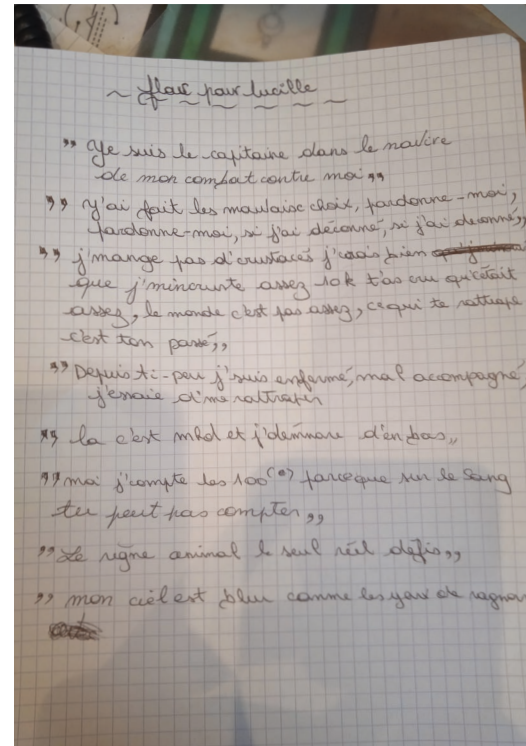 ~ flow pour lucille
,, Je suis le capitaine dans le navire
de mon combat contre moi ,,
,, J'ai fait les mauvaise choix, pardonne-moi,
pardonne-moi, si j'ai déconné, si j'ai deconné ,,
,, j'mange pas d'crustacés j'vois bien
que j'mincruste assez 10k t'as cru qu'cétait
assez, le monde c'est pas assez, ce qui te rattrape
c'est ton passé ,,
,, Depuis ti-peu j'suis enfermé, mal accompagné,
j'essaie d'me rattraper
,, la c'est mhd et j'démnare d'en bas ,,
,, moi j'compte les 100(°) parceque sur le sang
tu peut pas compter ,,
,, Le règne animal le seul réel défis ,,
,, mon ciel est bleu comme les yeux de ragnar